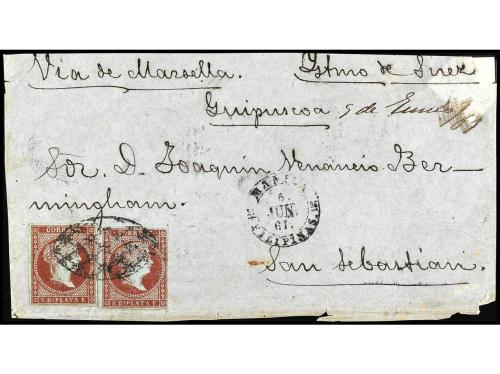 Via de Marsella. Ystmo de Suez
Guipuscoa 9 de Junio
Sor. D. Joaquin Venancio Ber-
mingham.
MANILA
5.
JUN
61.
FILIPINAS.
San Sebastian.
CORREOS CORREOS
2.Rl PLATA F. 2.Rl PLATA F.